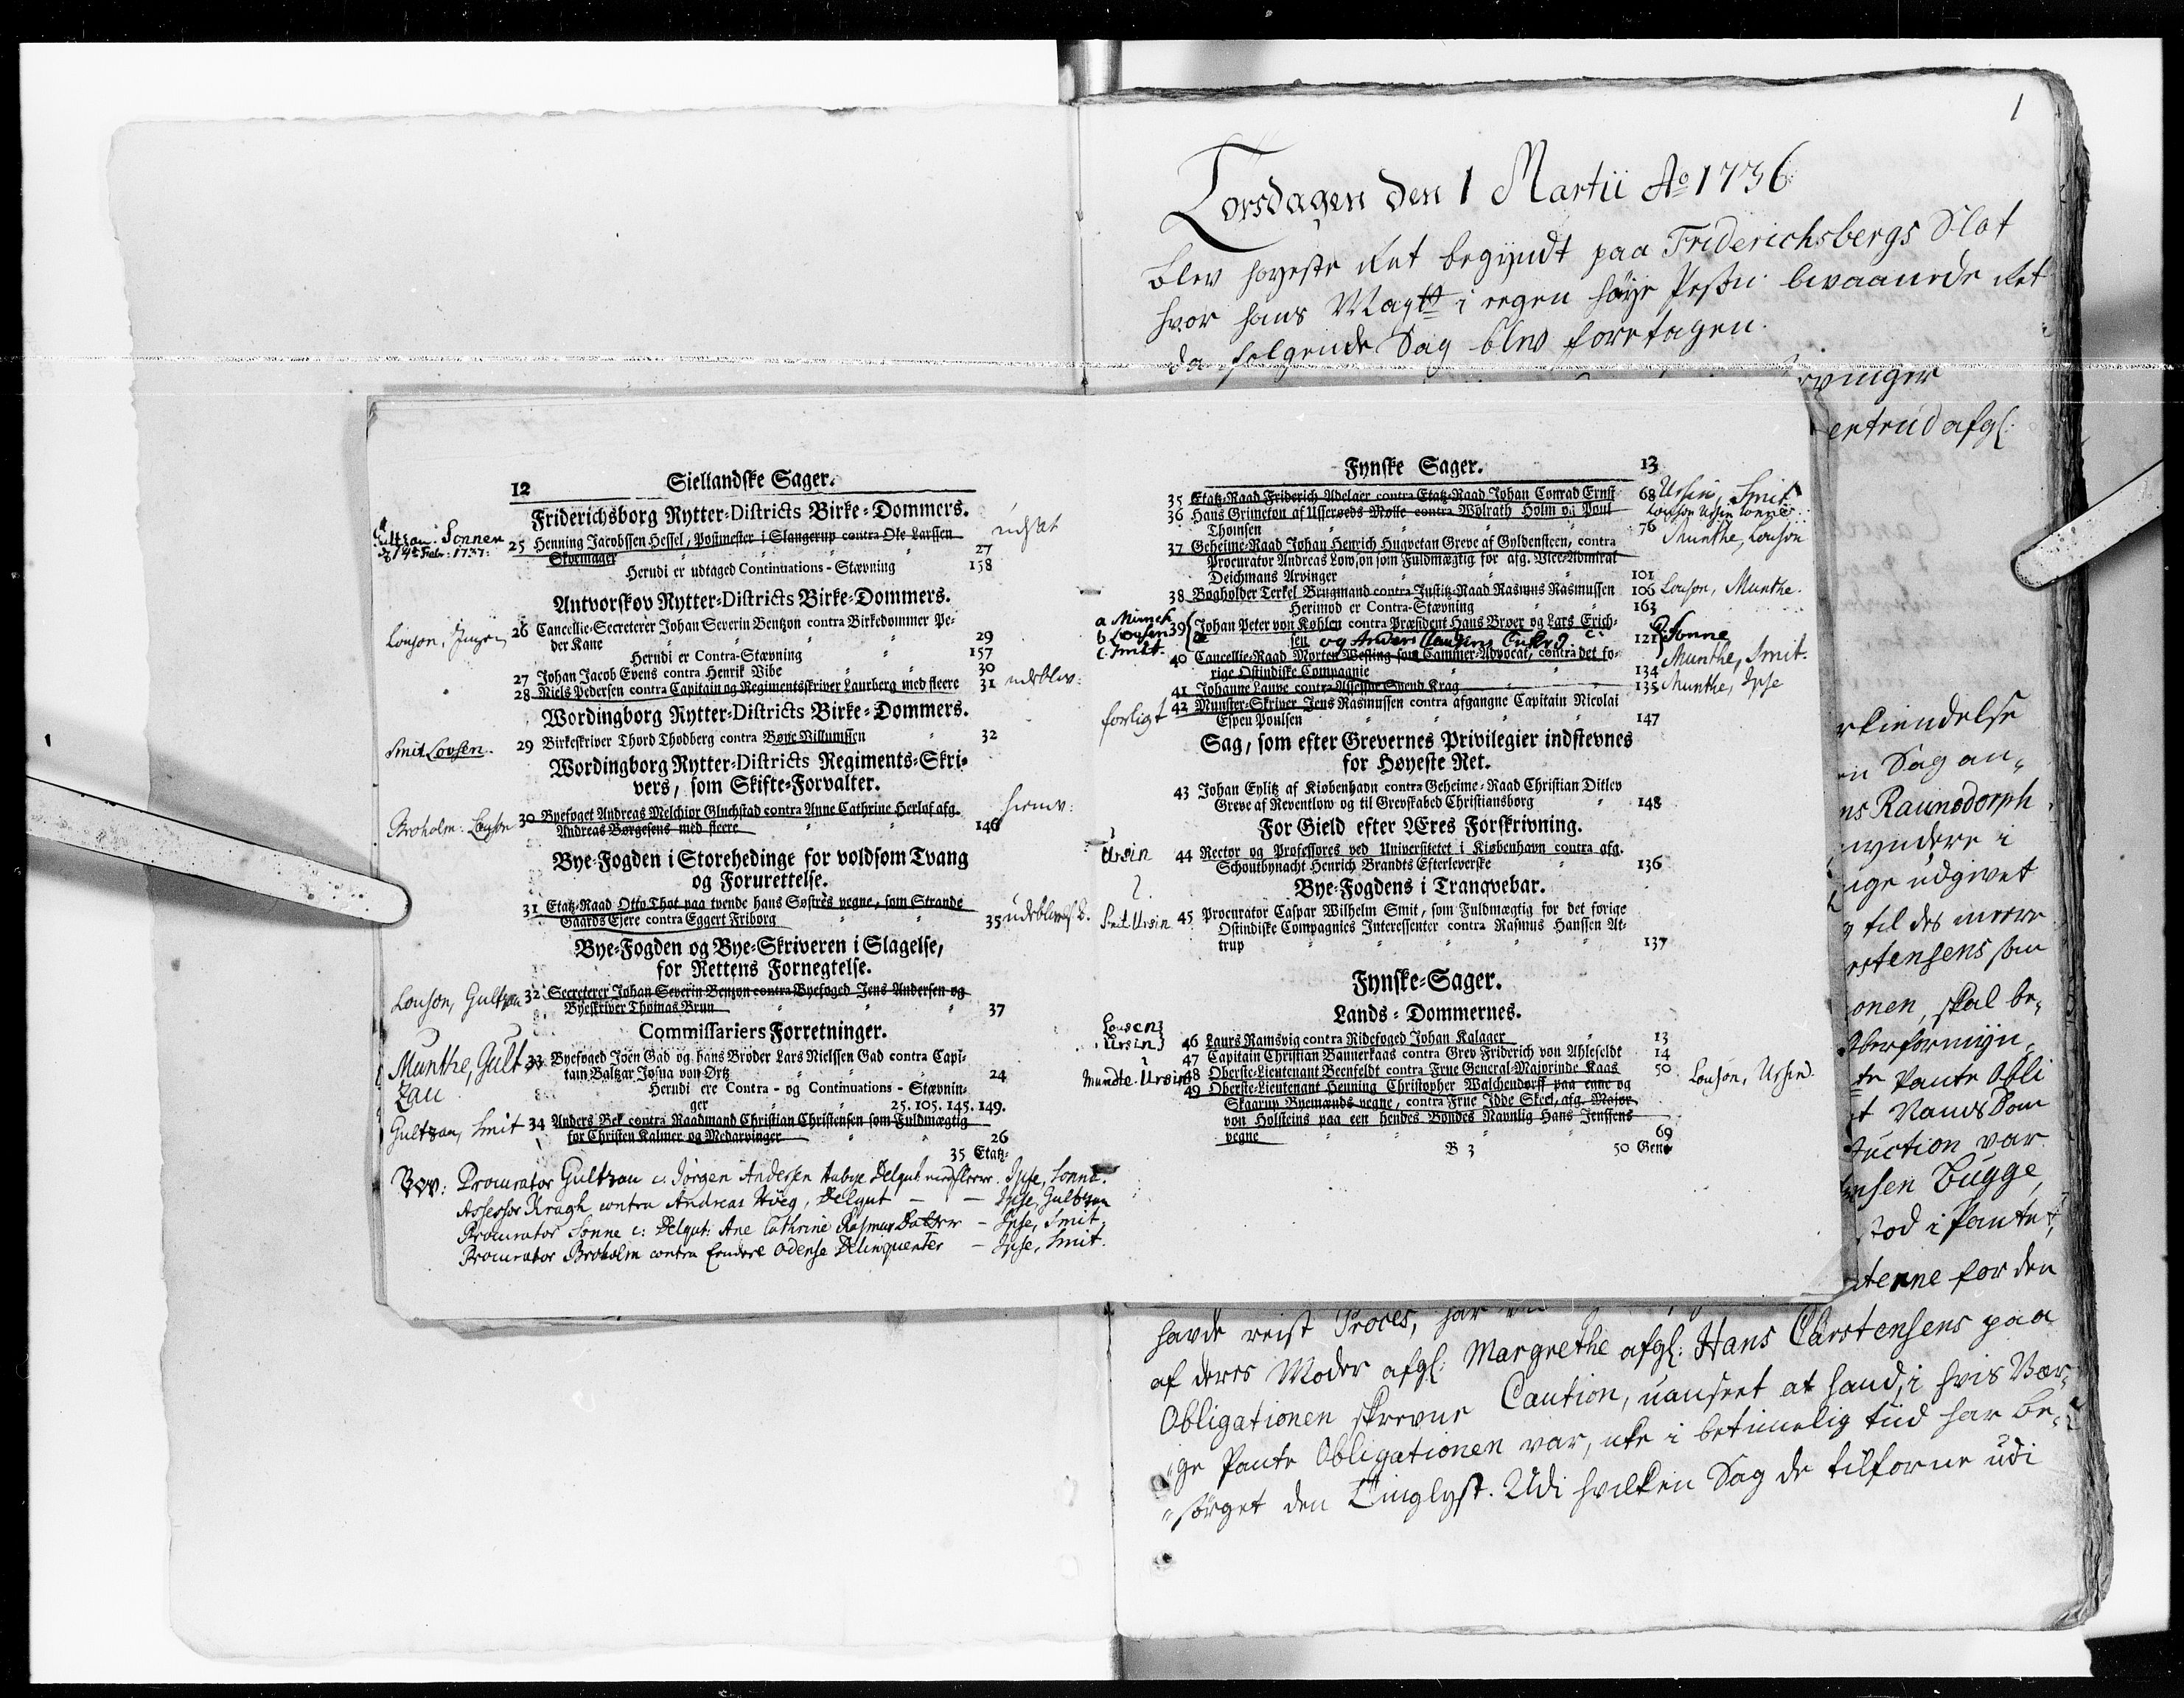 1
Torsdagen den 1 Martii Ao 1736
blev høyeste Ret begyndt paa Friderichsbergs Slot
hvor hans Maytt i egen høye Persohn bevaanede Ret
da følgende Sag blev foretagen.
rvinger
ertrud afgl:
12
Siellandske Sager.
Friderichsborg Rytter-Districts Birke-Dommers.
Gultzau. Sonnen
d 14de Febr: 1737:
25 Henning Jacobssen Hessel, Postmester i Slangerup contra Ole Larssen
udsat
Skoemager " " " " 27
Herudi er udtaged Continuations-Stævning 158
Antvorskov Rytter-Districts Birke-Dommers.
Louson,
26 Cancellie-Secreterer Johan Severin Bentzon contra Birkedommer Pe-
der Kane " " " " 29
Herudi er Contra-Stævning " 157
27 Johan Jacob Evens contra Henrik Vibe " " 30
28 Niels Pedersen contra Capitain og Regimentsskriver Laurberg med fleere 31 udeblev:
Wordingborg Rytter-Districts Birke-Dommers.
Smit Lovsen.
29 Birkeskriver Thord Thodberg contra Bøye Villumssen " 32
Wordingborg Rytter-Districts Regiments-Skri-
vers, som Skifte-Forvalter.
Broholm. Louson
30 Byefoget Andreas Melchior Gluchstad contra Anne Cathrine Herlof afg.
Andreas Børgesens med fleere " " 146
Bye-Fogden i Storehedinge for voldsom Tvang
og Forurettelse.
31 Etatz-Raad Otto Thot paa tvende hans Søstres vegne, som Strande
Gaards Ejere contra Eggert Friborg " " 35
Bye-Fogden og Bye-Skriveren i Slagelse,
for Rettens Fornegtelse.
Louson, Gultzau
32 Secreterer Johan Severin Benzon contra Byefoged Jens Andersen og
Byeskriver Thomas Brun " " " 37
Commissariers Forretninger.
Munthe, Gult
zau
33 Byefoged Joen Gad og hans Broder Lars Nielssen Gad contra Capi-
tain Baltzar Josua von Ørtz " " " 24
Herudi ere Contra- og Continuations-Stævnin-
ger " " 25. 105. 145. 149.
Gultzau, Smit
34 Anders Bek contra Raadmand Christian Christensen som Fuldmægtig
for Christen Kalmer og Medarvinger " " 26
35 Etatz-
Procurator Gultzau c. Jørgen Andersen Aabye Delqut: med fleere. Ipse, Sonne.
Assessor Kragh contra Andreas Høeg, Delqut — — Ipse, Gultzau
Procurator Sonne c: Delqut: Ane Cathrine Rasmus Datter — Ipse, Smit.
Procurator Broholm contra Odense Delinquenter — Ipse, Smit.
Fynske Sager. 13
35 Etatz-Raad Friderich Adelaer contra Etatz-Raad Johan Conrad Ernst 68 Ursin, Smit
36 Hans Grimeton af Usserøeds Mølle contra Wolrath Holm og Poul
Louson Ursin Sonne
Thomsen " " " " 76
Munthe, Louson
37 Geheime-Raad Johan Henrich Hugvetan Greve af Gyldensteen, contra
Procurator Andreas Lowson som Fuldmægtig for afg. Vice-Admiral
Deichmans Arvinger " " " 101
38 Bogholder Terkel Brugmand contra Justitz-Raad Rasmus Rasmussen 106 Louson, Munthe.
Herimod er Contra-Stævning " " 163
a Munch
b Lousen
c. Smit.
39 Johan Peter von Kohlen contra Præsident Hans Brøer og Lars Erich-
sen og Anders 121 Sonne
40 Cancellie-Raad Morten Westing som Cammer-Advocat, contra det fo-
Munthe, Smit.
rige Ostindiske Compagnie " " 134
41 Johanne Lauve contra Assessor Svend Krag " " 135 Munthe, Ipse
forligt
42 Munster-Skriver Jens Rasmussen contra afgangne Capitain Nicolai
Espen Poulsen " " " " 147
Sag, som efter Grevernes Privilegier indstevnes
for Høyeste Ret.
43 Johan Eylitz af Kiøbenhavn contra Geheime-Raad Christian Ditlev
Greve af Reventlow og til Grevskabed Christiansborg " 148
For Gield efter Æres Forskrivning.
Ursin
44 Rector og Professores ved Universitetet i Kiøbenhavn contra afg.
Schoutbynacht Henrich Brandts Efterleverske " 136
Bye-Fogdens i Tranqvebar.
Smit Ursin
45 Procurator Caspar Wilhelm Smit, som Fuldmægtig for det forige
Ostindiske Compagnies Interessenter contra Rasmus Hanssen At-
trup " " " " " 137
Fynske-Sager.
Lands-Dommernes.
Lousen
Ursin
46 Laurs Ramsvig contra Ridefoged Johan Kalager " 13
47 Capitain Christian Bannerkaas contra Grev Friderich von Ahlefeldt 14
Mundte Ursin
48 Oberste-Lieutenant Beenfeldt contra Frue General-Majorinde Kaas 50
Louson, Ursin.
49 Oberste-Lieutenant Henning Christopher Walchendorff paa egne og
Skaarup Byemænds vegne, contra Frue Idde Skeel, afg. Major
von Holsteins paa een hendes Bondes Navnlig Hans Jenssens
vegne " " " " 69
B 3 50 Gene-
rkiendelse
en Sag an,
ns Raunsdorph
myndere i
ige udgivet
til des meere
rstensens som
onen, skal be,
Oberformyn,
te Pante Obli
Auction var
nsen Bugge,
stod i Pantet,
terne for den
havde reist Proces, har
af deres Moder afgl: Margrethe afgl: Hans Carstensens paa
Obligationen skrevne Caution, uanseet at hand, i hvis Vær-
ge Pante Obligationen var, icke i betimelig tiid har be-
sørget den Tinglyst. Udi hvilken Sag de tilforne udi